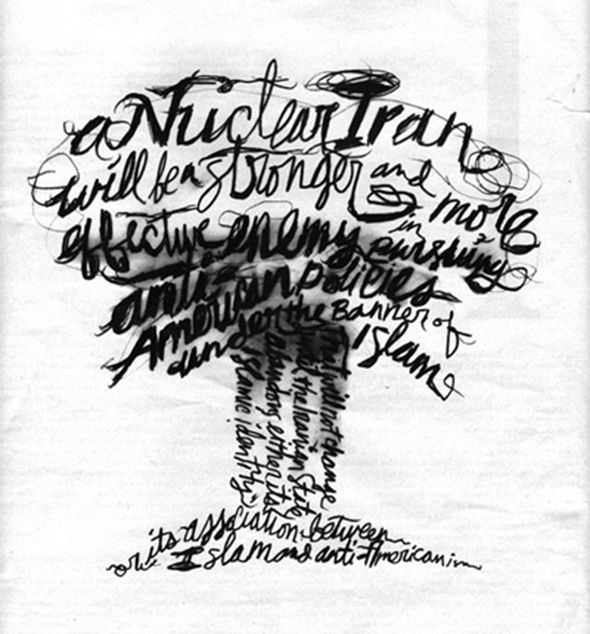 a Nuclear Iran
will be a stronger and more
effective enemy in pursuing
anti-American policies
under the Banner of Islam
That will not change
until the Iranian State
abandons either its
Islamic identity
or its association between
Islam and anti-Americanism